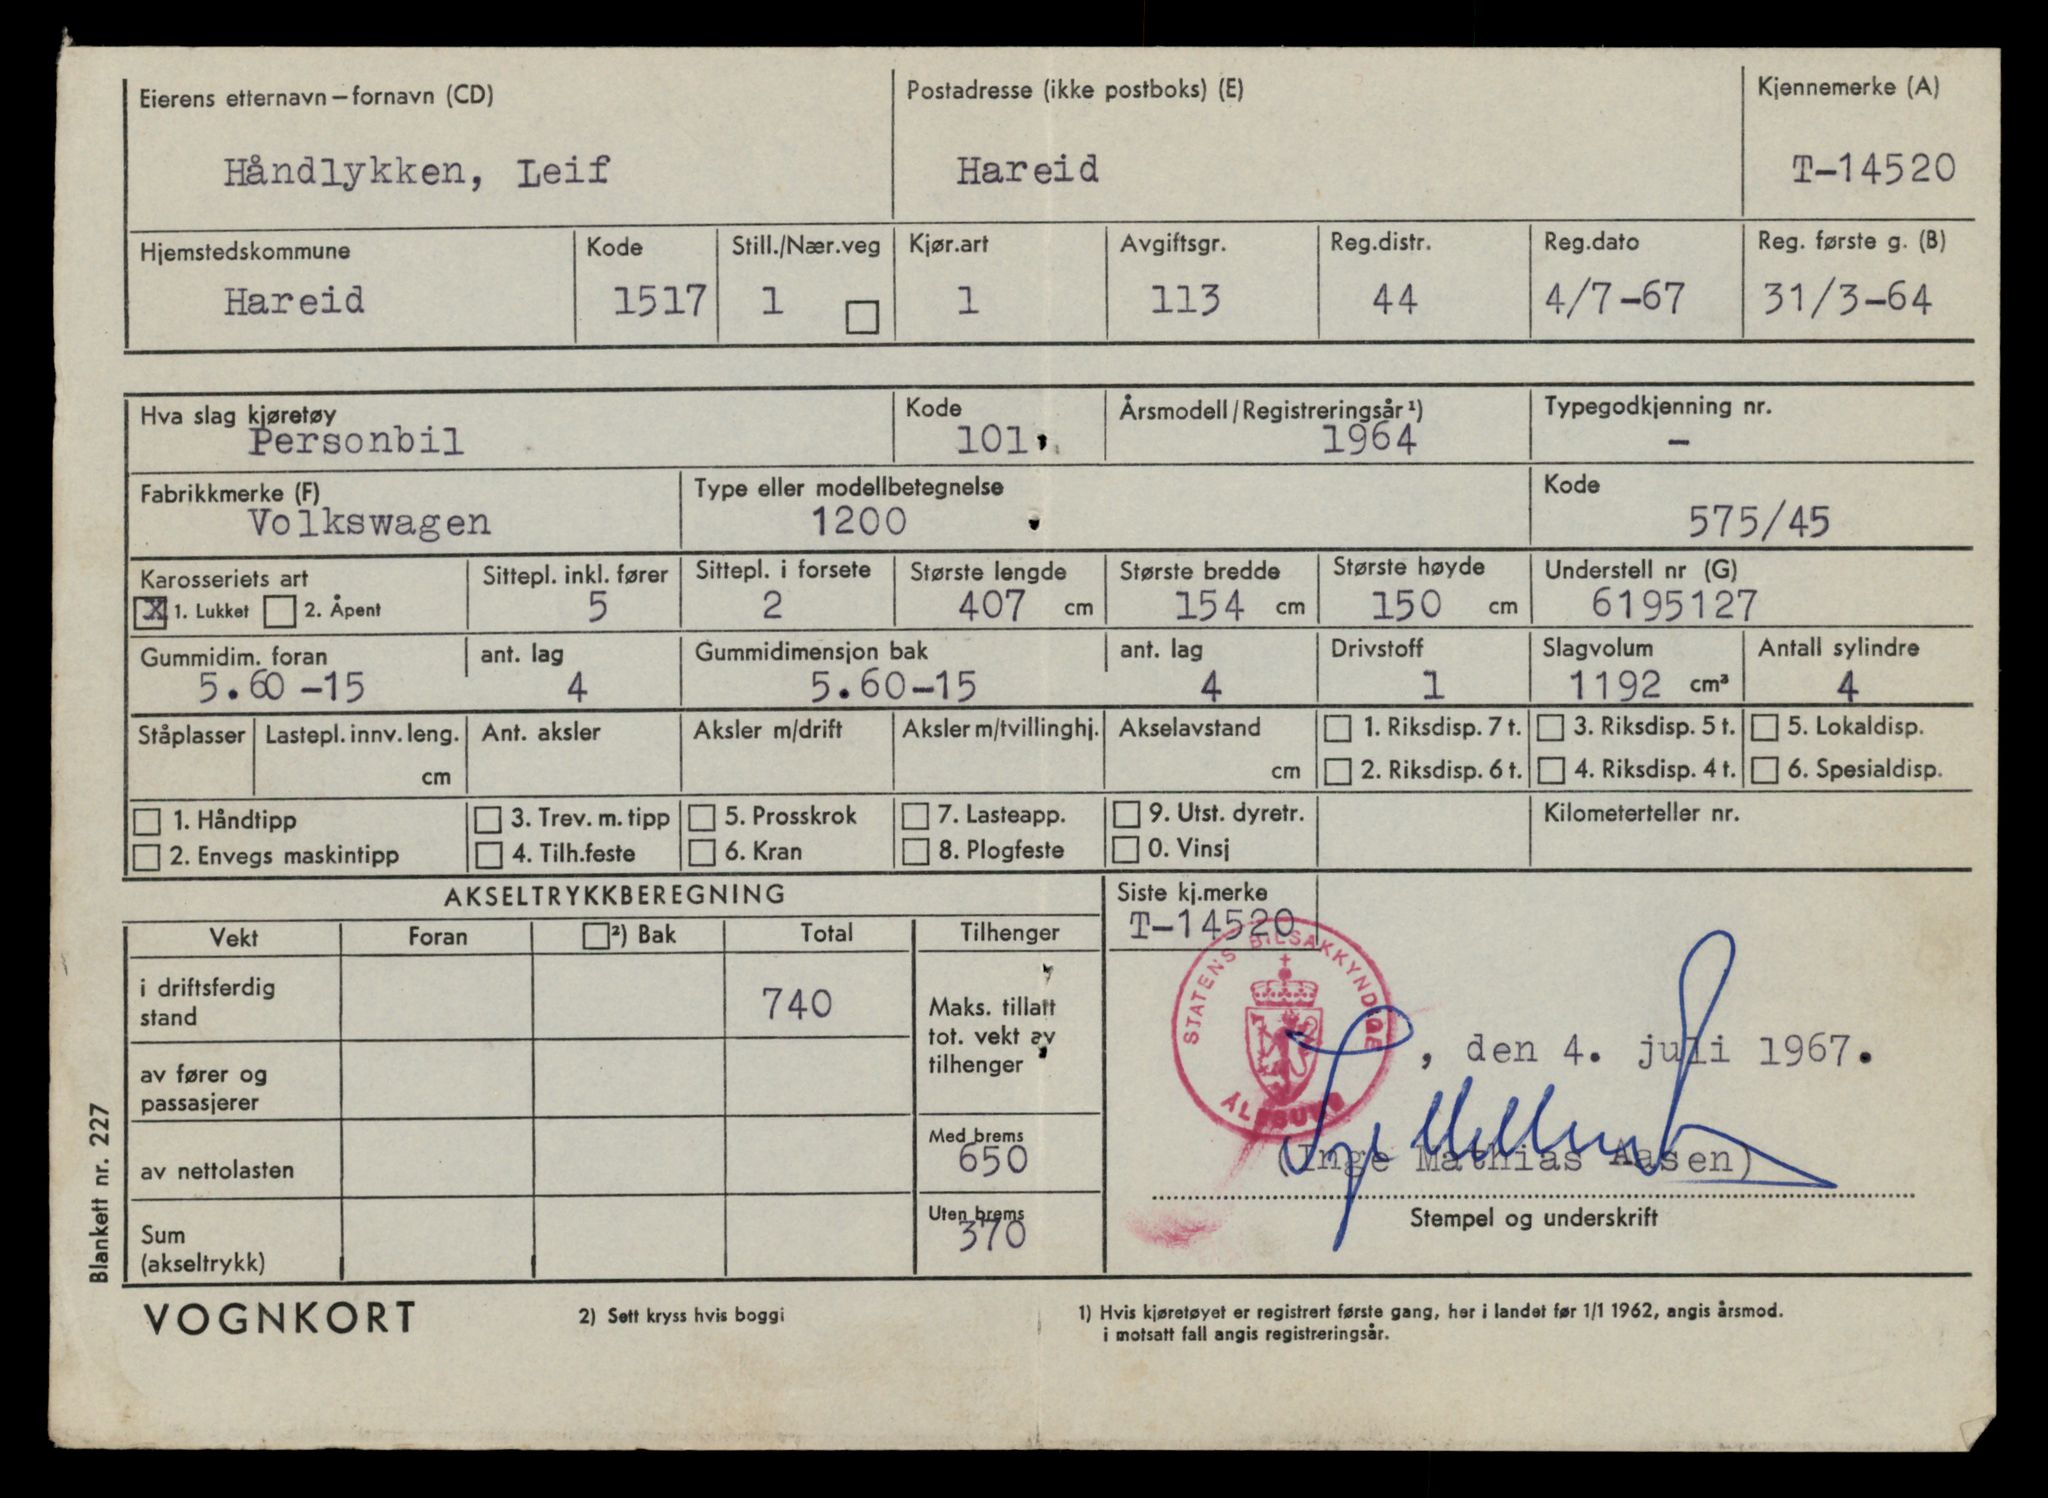 Eierens etternavn – fornavn (CD) Postadresse (ikke postboks) (E) Kjennemerke (A)
Håndlykken, Leif Hareid T-14520
Hjemstedskommune Kode Still./Nær.veg Kjør.art Avgiftsgr. Reg.distr. Reg.dato Reg. første g. (B)
Hareid 1517 1 1 113 44 4/7-67 31/3-64
Hva slag kjøretøy Kode Årsmodell/Registreringsår ¹) Typegodkjenning nr.
Personbil 101. 1964 -
Fabrikkmerke (F) Type eller modellbetegnelse Kode
Volkswagen 1200 575/45
Karosseriets art Sittepl. inkl. fører Sittepl. i forsete Største lengde Største bredde Største høyde Understell nr (G)
X 1. Lukket 2. Åpent 5 2 407 cm 154 cm 150 cm 6195127
Gummidim. foran ant. lag Gummidimensjon bak ant. lag Drivstoff Slagvolum Antall sylindre
5.60-15 4 5.60-15 4 1 1192 cm³ 4
Ståplasser Lastepl. innv. leng. Ant. aksler Aksler m/drift Aksler m/tvillinghj. Akselavstand 1. Riksdisp. 7 t. 3. Riksdisp. 5 t. 5. Lokaldisp.
cm cm 2. Riksdisp. 6 t. 4. Riksdisp. 4 t. 6. Spesialdisp.
1. Håndtipp 3. Trev. m. tipp 5. Prosskrok 7. Lasteapp. 9. Utst. dyretr. Kilometerteller nr.
2. Envegs maskintipp 4. Tilh.feste 6. Kran 8. Plogfeste 0. Vinsj
AKSELTRYKKBEREGNING Siste kj.merke
T-14520
Vekt Foran ²) Bak Total Tilhenger
i driftsferdig
stand 740
Maks. tillatt
tot. vekt av
tilhenger
STATENS BILSAKKYNDIGE
ÅLESUND
, den 4. juli 1967.
av fører og
passasjerer
Med brems
650
(Inge Mathias Aasen)
av nettolasten
Uten brems
370
Stempel og underskrift
Sum
(akseltrykk)
Blankett nr. 227
VOGNKORT 2) Sett kryss hvis boggi 1) Hvis kjøretøyet er registrert første gang, her i landet før 1/1 1962, angis årsmod.
i motsatt fall angis registreringsår.